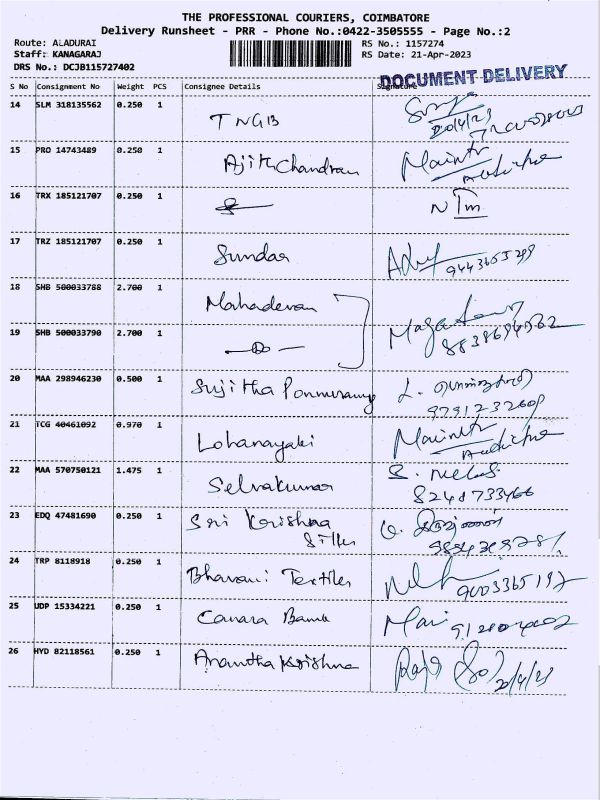 THE PROFESSIONAL COURIERS, COIMBATORE
Delivery Runsheet - PRR - Phone No.:0422-3505555 - Page No.:2
Route: ALADURAI RS No.: 1157274
Staff: KANAGARAJ RS Date: 21-Apr-2023
DRS No.: DCJB115727402
DOCUMENT DELIVERY
S No Consignment No Weight PCS Consignee Details Signature
14 SLM 318135562 0.250 1 TNGB
20/4/23
15 PRO 14743489 0.250 1 Ajith Chandran
16 TRX 185121707 0.250 1 NTM
17 TRZ 185121707 0.250 1 Sundar
18 SHB 500033788 2.700 1 Mahadevan
19 SHB 500033790 2.700 1
20 MAA 298946230 0.500 1 Sujitha Ponmuramy
21 TCG 40461092 0.970 1 Lohanayaki
22 MAA 570750121 1.475 1 Selvakumar
23 EDQ 47481690 0.250 1 Sri Krishna
Silks
24 TRP 8118918 0.250 1 Bhavani Textiles 9003365197
25 UDP 15334221 0.250 1 Canara Bank Mari
26 HYD 82118561 0.250 1 Anantha Krishna Raja 20/4/23